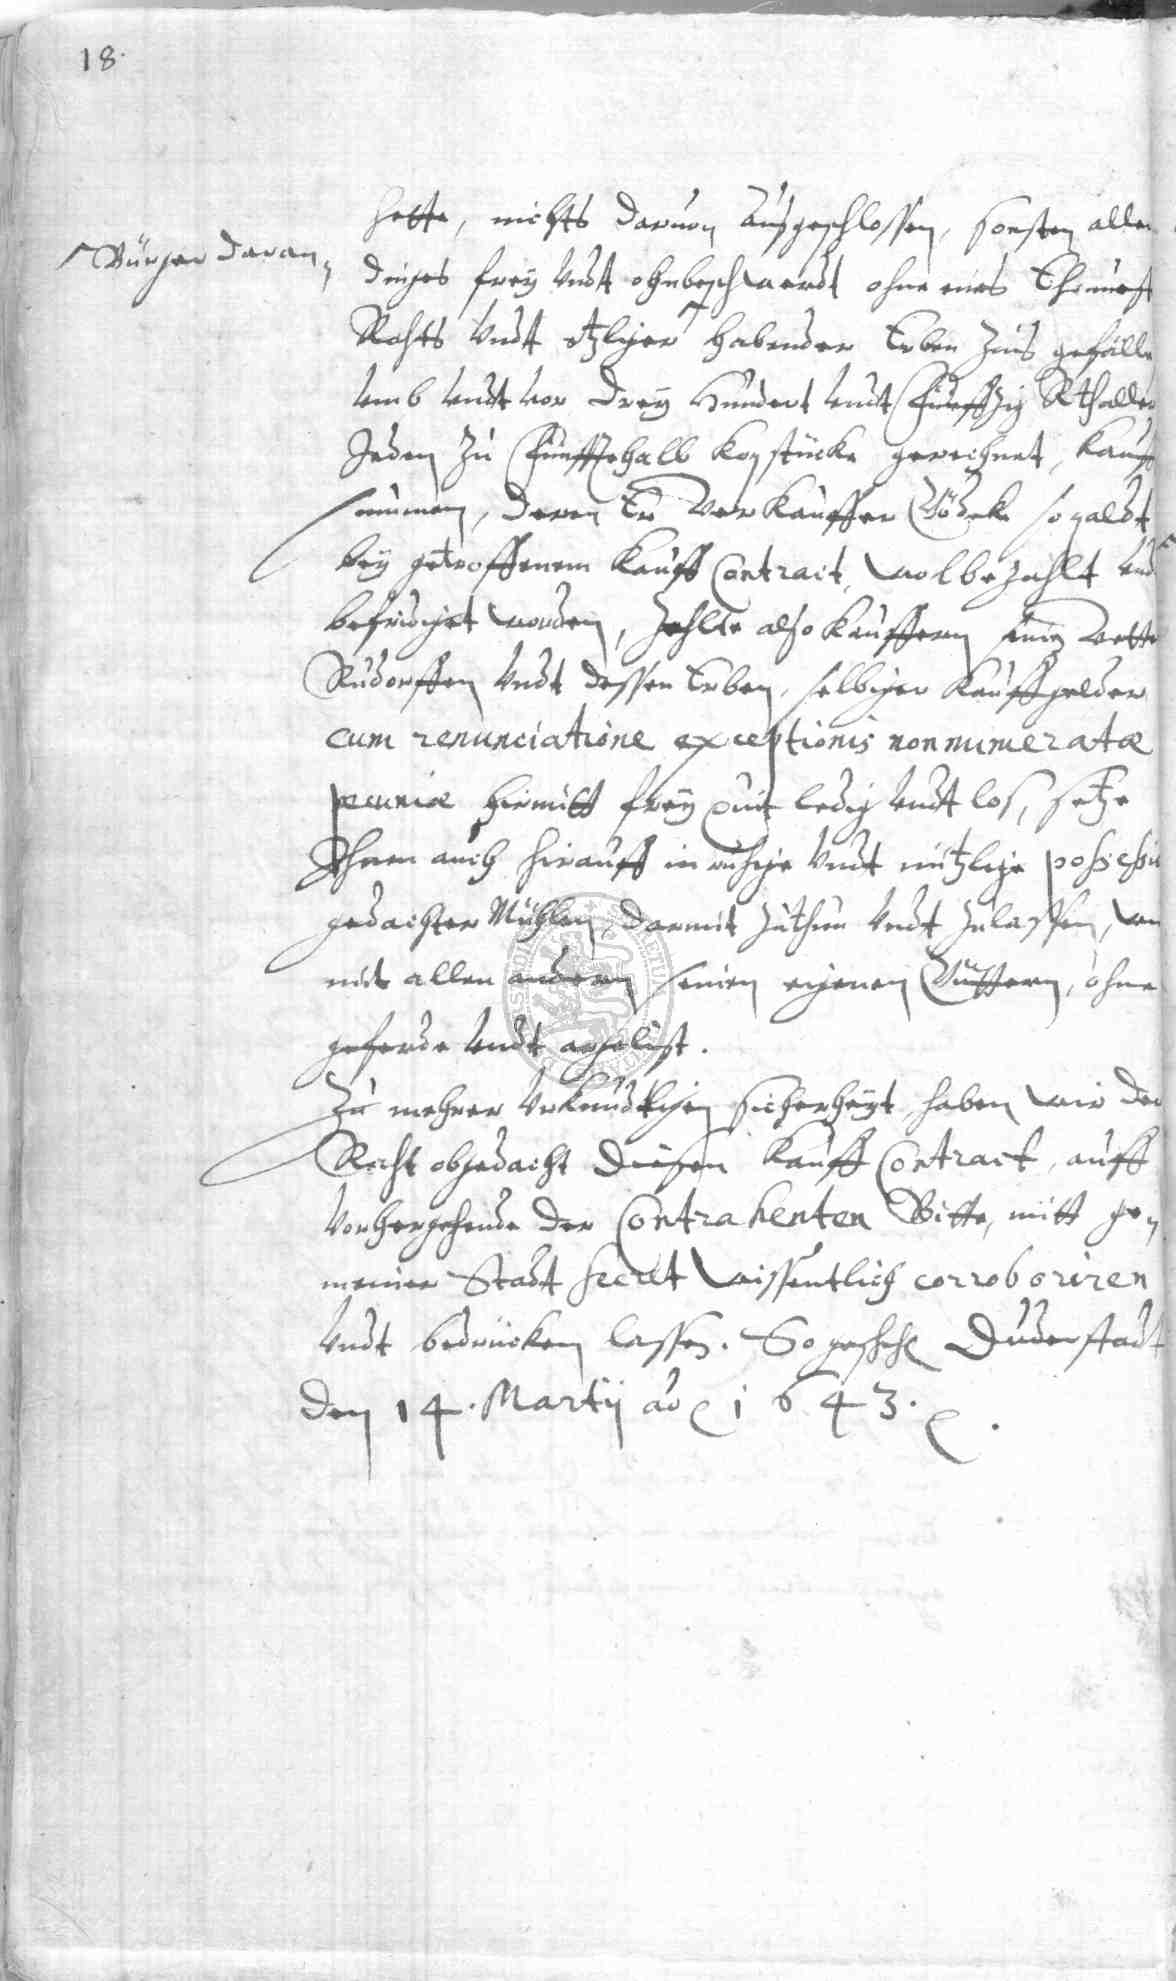 18.
hette, nichts daruon außgeschlossen, sonsten aller
Bürger daran
dinges frey vndt ohnbeschwerdt ohne eins
Rahts vndt etzlicher habender Erben Zins gefälle
umb vndt vor drey Hundert vndt Fünffzig Rthaller
Jeden zu Fünffzehalb kopstücke gerechnet, Kauff
summen, deren Er Verkäuffer so paldt
bey getroffenem Kauff Contract, wolbezahlt vnd
befridiget worden, zehlte also Käuffern
Rudorffen vndt dessen Erben, selbiger Kauffgelder
cum renunciatione exceptionis non numeratæ
pecuniæ hirmitt frey quit ledig vndt loß, setze
Ihnen auch hirauff in ruhige vndt nützliche possessi
gedachter Mühlen, darmit zuthun vndt zulassen,
mit allen andern seinen eigenen Güttern, ohne
geferde vndt argelist.
Zu mehrer Urkundtlichen sicherheyt, haben wir der
Raht obgedacht diesen Kauff Contract, auff
vorhergehende der Contrahenten Bitte, mitt ge„
meiner Stadt secret wissentlich corroboriren
vndt bedrücken lassen. So geschehe Duderstadt
den 14. Martij ao 1643.